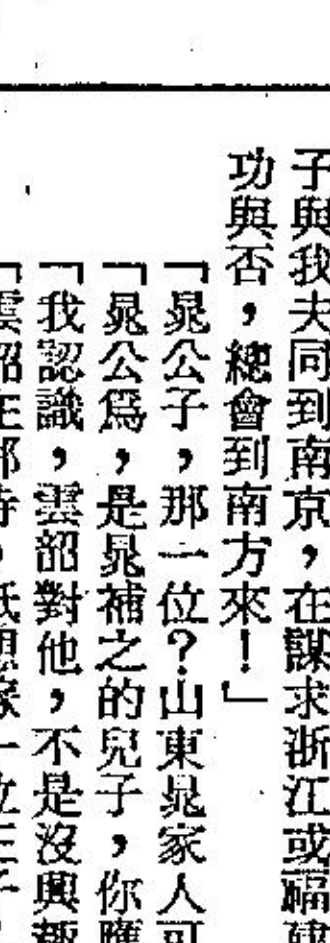 子與我夫同到南京，在謀求浙江或福建
功與否，總會到南方來！」
「晁公子，那一位？山東晁家人可
「晁公爲，是晁補之的兒子，你應
「我認識，雲韶對他，不是沒興趣
「雲韶在那時，祇想嫁一位王子